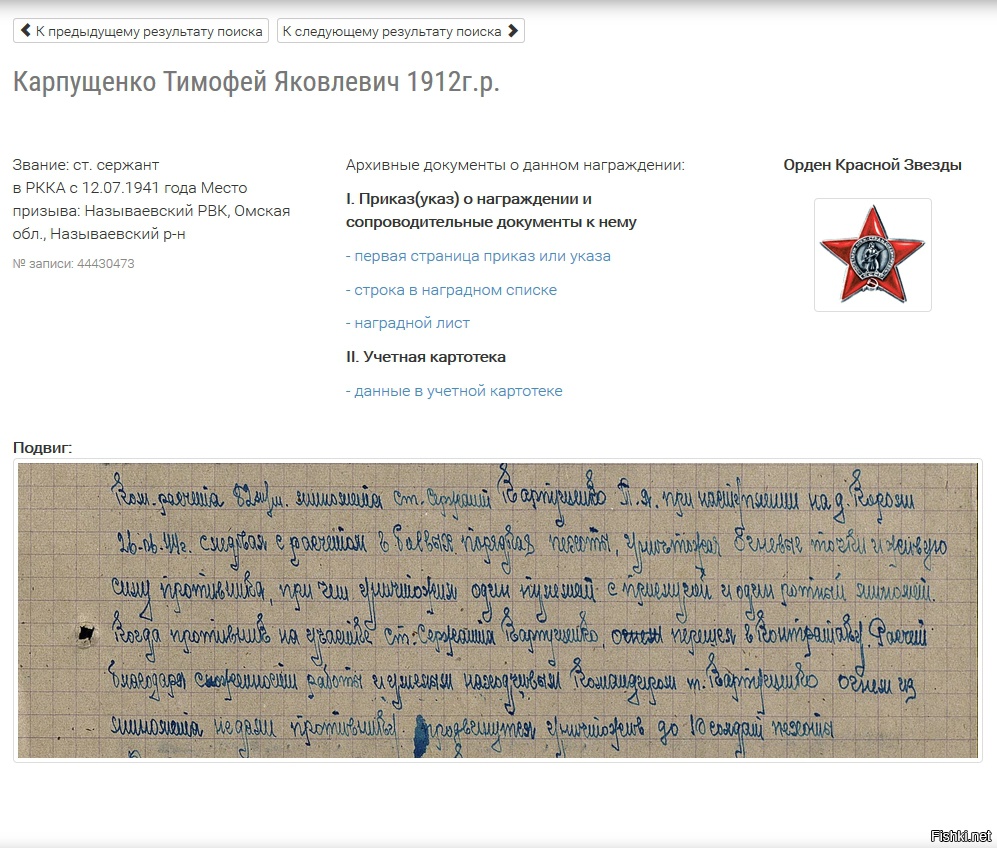 К предыдущему результату поиска
К следующему результату поиска
Карпущенко Тимофей Яковлевич 1912г.р.
Звание: ст. сержант
в РККА с 12.07.1941 года Место
призыва: Называевский РВК, Омская
обл., Называевский р-н
№ записи: 44430473
Архивные документы о данном награждении:
I. Приказ(указ) о награждении и
сопроводительные документы к нему
- первая страница приказ или указа
- строка в наградном списке
- наградной лист
II. Учетная картотека
- данные в учетной картотеке
Орден Красной Звезды
Подвиг:
Ком. расчета 82 м/м. миномета ст. сержант Т.Я. при наступлении на д.
26.06.44г. следуя с расчетом в боевых порядках пехоты, уничтожая огневые точки и живую
силу противника, при чем уничтожил один пулемет с прислугой и один ротный миномет.
Когда противник на участке ст. сержанта перешел в контратаку. Расчет
благодаря слаженности работы и умелым находчивым командиром т. огнем из
миномета не дали противнику продвинутся, уничтожив до 10 солдат пехоты
Fishki.net